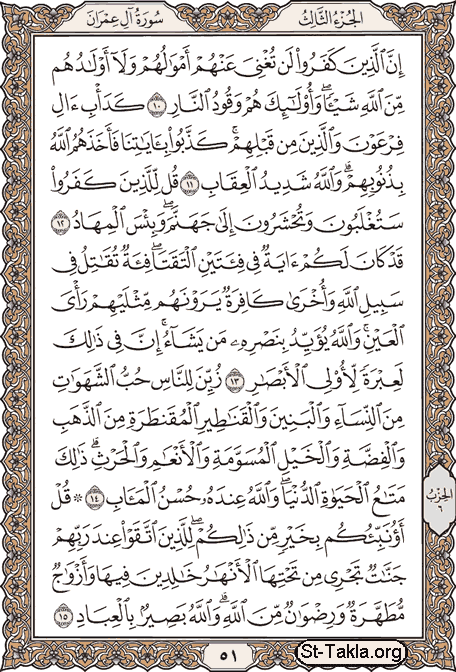 الجزء الثالث
سورة آل عمران
إِنَّ ٱلَّذِينَ كَفَرُوا۟ لَن تُغْنِىَ عَنْهُمْ أَمْوَٰلُهُمْ وَلَآ أَوْلَـٰدُهُم
مِّنَ ٱللَّهِ شَيْـًٔا ۖ وَأُو۟لَـٰٓئِكَ هُمْ وَقُودُ ٱلنَّارِ ١٠ كَدَأْبِ ءَالِ
فِرْعَوْنَ وَٱلَّذِينَ مِن قَبْلِهِمْ ۚ كَذَّبُوا۟ بِـَٔايَـٰتِنَا فَأَخَذَهُمُ ٱللَّهُ
بِذُنُوبِهِمْ ۗ وَٱللَّهُ شَدِيدُ ٱلْعِقَابِ ١١ قُل لِّلَّذِينَ كَفَرُوا۟
سَتُغْلَبُونَ وَتُحْشَرُونَ إِلَىٰ جَهَنَّمَ ۚ وَبِئْسَ ٱلْمِهَادُ ١٢
قَدْ كَانَ لَكُمْ ءَايَةٌ فِى فِئَتَيْنِ ٱلْتَقَتَا ۖ فِئَةٌ تُقَـٰتِلُ فِى
سَبِيلِ ٱللَّهِ وَأُخْرَىٰ كَافِرَةٌ يَرَوْنَهُم مِّثْلَيْهِمْ رَأْىَ
ٱلْعَيْنِ ۚ وَٱللَّهُ يُؤَيِّدُ بِنَصْرِهِۦ مَن يَشَآءُ ۗ إِنَّ فِى ذَٰلِكَ
لَعِبْرَةً لِّأُو۟لِى ٱلْأَبْصَـٰرِ ١٣ زُيِّنَ لِلنَّاسِ حُبُّ ٱلشَّهَوَٰتِ
مِنَ ٱلنِّسَآءِ وَٱلْبَنِينَ وَٱلْقَنَـٰطِيرِ ٱلْمُقَنطَرَةِ مِنَ ٱلذَّهَبِ
وَٱلْفِضَّةِ وَٱلْخَيْلِ ٱلْمُسَوَّمَةِ وَٱلْأَنْعَـٰمِ وَٱلْحَرْثِ ۗ ذَٰلِكَ
مَتَـٰعُ ٱلْحَيَوٰةِ ٱلدُّنْيَا ۖ وَٱللَّهُ عِندَهُۥ حُسْنُ ٱلْمَـَٔابِ ١٤ ۞ قُلْ
أَؤُنَبِّئُكُم بِخَيْرٍ مِّن ذَٰلِكُمْ ۚ لِلَّذِينَ ٱتَّقَوْا۟ عِندَ رَبِّهِمْ
جَنَّـٰتٌ تَجْرِى مِن تَحْتِهَا ٱلْأَنْهَـٰرُ خَـٰلِدِينَ فِيهَا وَأَزْوَٰجٌ
مُّطَهَّرَةٌ وَرِضْوَٰنٌ مِّنَ ٱللَّهِ ۗ وَٱللَّهُ بَصِيرٌۢ بِٱلْعِبَادِ ١٥
الحزب
٦
٥١
St-Takla.org